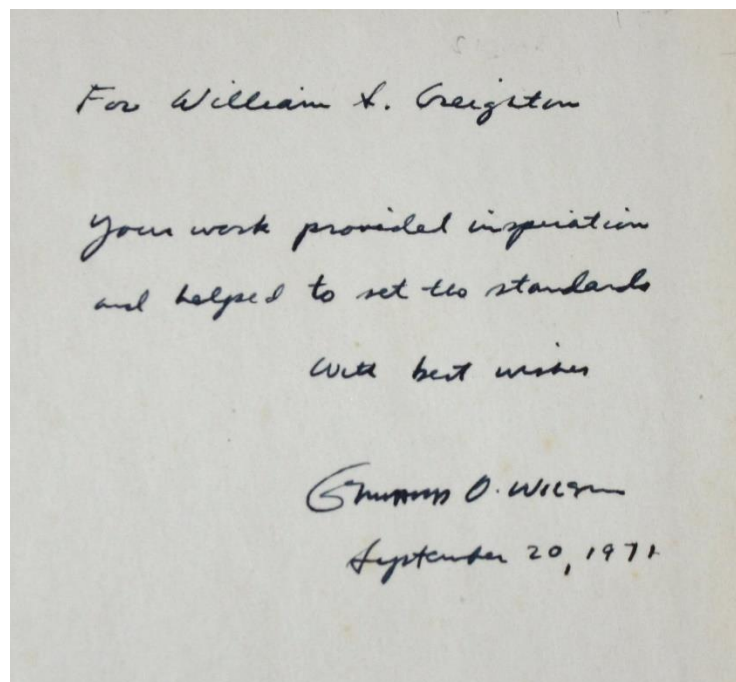 For William S. Creighton
Your work provided inspiration
and helped to set the standards
With best wishes
Edward O. Wilson
September 20, 1971